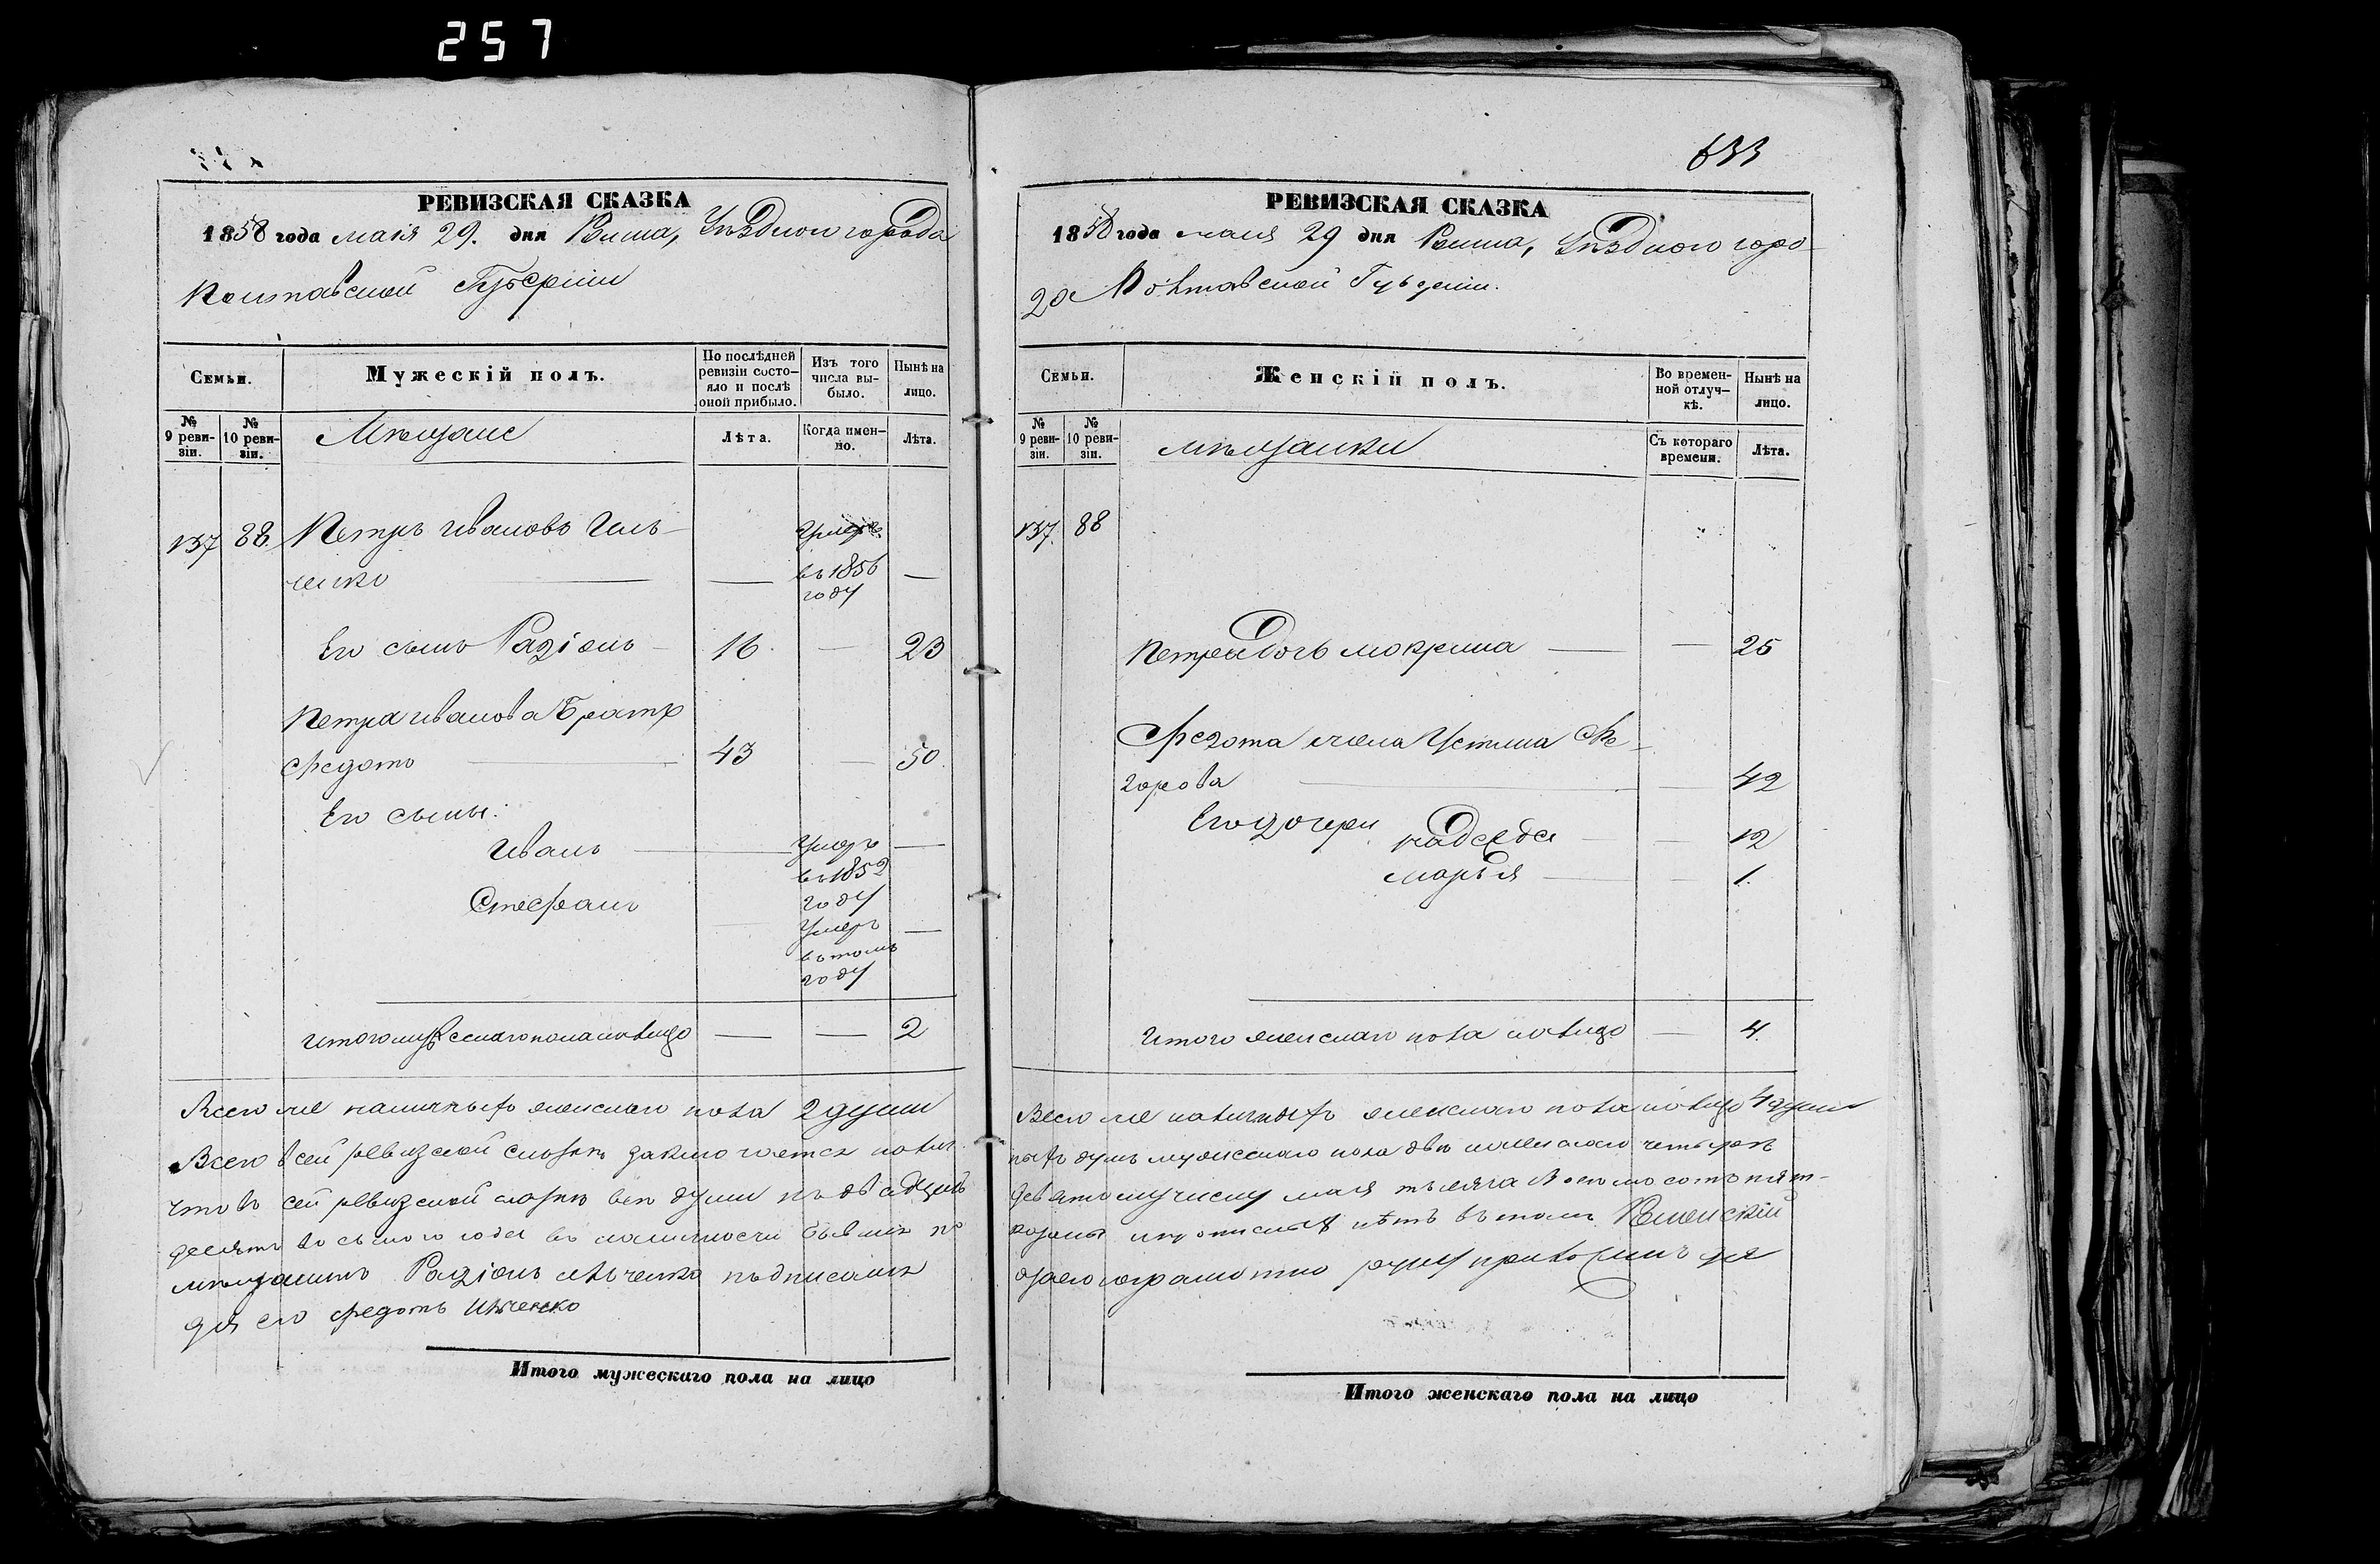 257
РЕВИЗСКАЯ СКАЗКА
1858 года маія 29. дня Ромна, Уѣзднаго города
Полтавской Губерніи
Семьи.
Мужескій полъ.
По послѣдней ревизіи состояло и послѣ оной прибыло.
Изъ того числа выбыло.
Нынѣ на лицо.
№ 9 ревизіи.
№ 10 ревизіи.
Мѣщане
Лѣта.
Когда именно.
Лѣта.
137 88 Петръ Ивановъ Иль-
ченко — — —
Умеръ
въ 1856
году
Его сынъ Радіонъ 16 — 23
Петра Иванова Братъ
Федотъ 43 — 50
Его сыны:
Иванъ — Умеръ —
въ 1852
году
Стефанъ
Умеръ —
въ томъ
году
Итого мужескаго пола налицо — — 2
Всего же наличныхъ женскаго пола 2 души
Всего в сей ревизской сказкѣ заключается налич
что въ сей ревизской сказкѣ всѣ души къ двадцать
десятъ восьмого года въ наличности бывшіе
мѣщанинъ Радіонъ Ильченко подписался
дя его Федотъ Ильченко
Итого мужескаго пола на лицо
633
РЕВИЗСКАЯ СКАЗКА
1858 года маия 29 дня Ромна, Уѣзднаго горо-
да Полтавской Губерніи.
Семьи.
Женскій полъ.
Во временной отлучкѣ.
Нынѣ на лицо.
№ 9 ревизіи.
№ 10 ревизіи.
мѣщанки
Съ котораго времени.
Лѣта.
137. 88
Петра дочь мокрина — — 25
Федота жена Устина Фе-
горова — — 42
Его дочери надежда — 12
марья — 1.
Итого женскаго пола налицо — 4.
Всего же наличныхъ женскаго пола налицо 4 души
ныхъ душъ мужескаго пола двѣ и женскаго четыре
девятому числу маия тысяча восемсотъ пят-
и прописныхъ нѣтъ въ томъ Роменскій
руку приложилъ дя
Итого женскаго пола на лицо